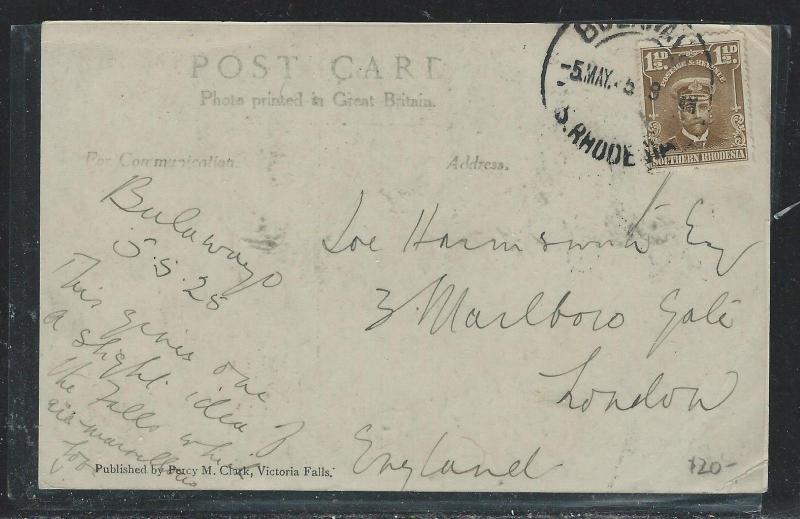 POST CARD
Photo printed in Great Britain.
BULAWAYO
-5 MAY.
S. RHODESIA
1½D 1½D
POSTAGE & REVENUE
SOUTHERN RHODESIA
For Communication.
Address.
Bulawayo
5.5.25
This gives one
a slight idea of
the Falls which
are marvellous
too
Joe Harmsworth Esq
3 Marlboro Gate
London
England
Published by Percy M. Clark, Victoria Falls.
120-